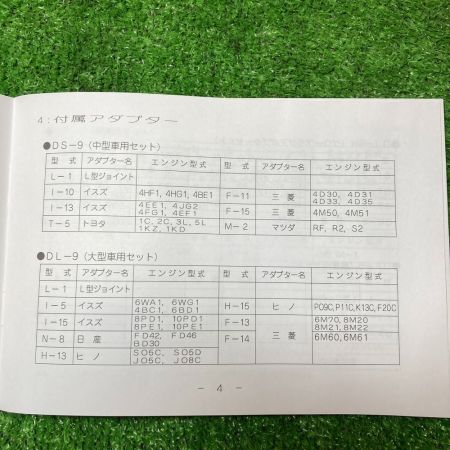 4：付属アダプター
●DS－9（中型車用セット）
型　式　アダプター名　エンジン型式　型　式　アダプター名　エンジン型式
L－1　L型ジョイント
I－10　イスズ　4HF1, 4HG1, 4BE1　F－11　三　菱　4D30, 4D31
4D33, 4D35
I－13　イスズ　4EE1, 4JG2
4FG1, 4EF1　F－15　三　菱　4M50, 4M51
T－5　トヨタ　1C, 2C, 3L, 5L
1KZ, 1KD　M－2　マツダ　RF, R2, S2
●DL－9（大型車用セット）
型　式　アダプター名　エンジン型式　型　式　アダプター名　エンジン型式
L－1　L型ジョイント
I－5　イスズ　6WA1, 6WG1
4BC1, 6BD1　H－15　ヒ　ノ　P09C, P11C, K13C, F20C
I－15　イスズ　8PD1, 10PD1
8PE1, 10PE1　F－13　三　菱　6M70, 8M20
8M21, 8M22
N－8　日　産　FD42, FD46
BD30　F－14　6M60, 6M61
H－13　ヒ　ノ　S05C, S05D
J05C, J08C
－ 4 －